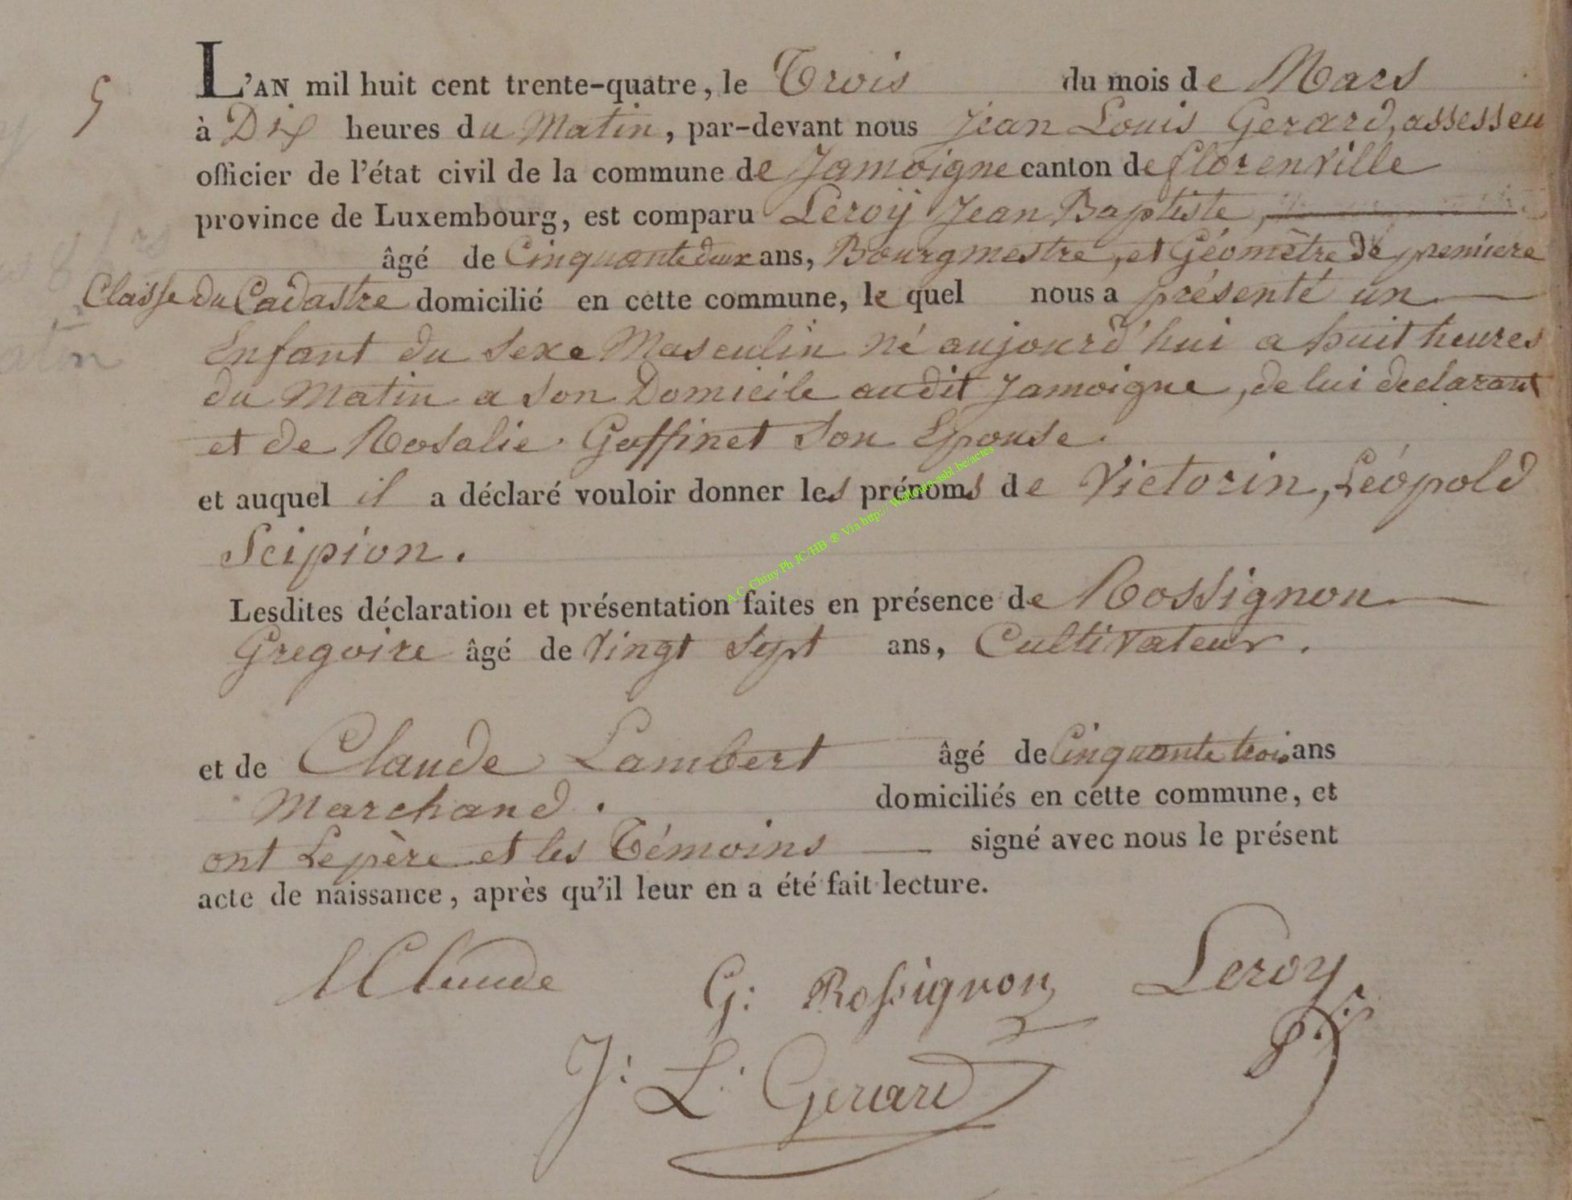 5
L'AN mil huit cent trente-quatre, le Trois du mois de Mars
à Dix heures du Matin, par-devant nous Jean Louis Gerard, assesseu
officier de l'état civil de la commune de Jamoigne canton de florenville
province de Luxembourg, est comparu Leroÿ Jean Baptiste,
âgé de Cinquante deux ans, Bourgmestre, et Géomètre de premiere
Classe du Cadastre domicilié en cette commune, le quel nous a présenté un
Enfant du Sexe Masculin né aujourd'hui a huit heures
du Matin a Son Domicile audit Jamoigne, de lui declarant
et de Rosalie Goffinet Son Epouse.
et auquel il a déclaré vouloir donner les prénoms de Victorin, Léopold
Scipion.
A.C. Chiny Ph JC/HB ® Via http://
Lesdites déclaration et présentation faites en présence de Rossignon
Gregoire âgé de Vingt Sept ans, Cultivateur.
et de Claude Lambert âgé de Cinquante trois ans
Marchand. domiciliés en cette commune, et
ont Le père et les Témoins signé avec nous le présent
acte de naissance, après qu'il leur en a été fait lecture.
l Claude G: Rossignon Leroy
J: L: Gerard